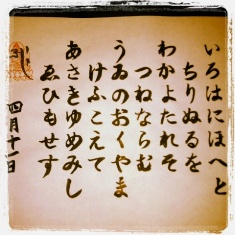 いろはにほへと
ちりぬるを
わかよたれそ
つねならむ
うゐのおくやま
けふこえて
あさきゆめみし
ゑひもせす
四月十一日